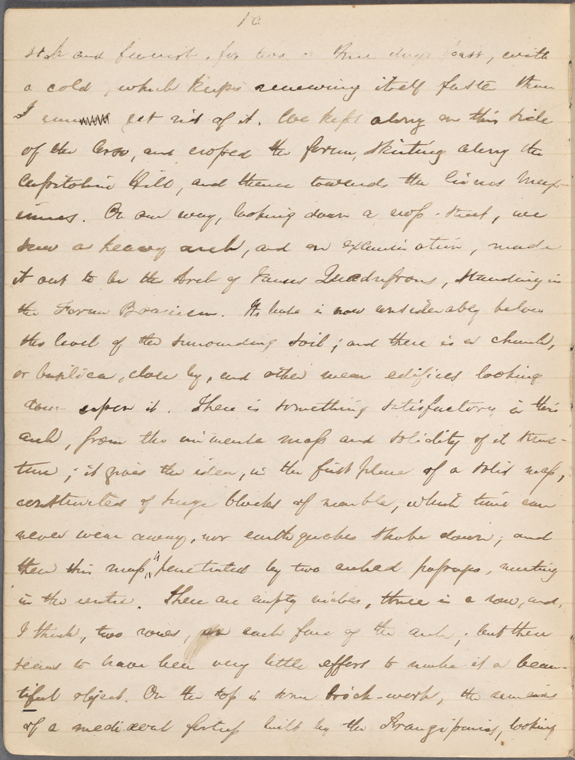 10
sick and feverish, for two or three days past, with
a cold, which keeps renewing itself faster than
I can get rid of it. We kept along on this side
of the Corso, and crossed the forum, skirting along the
Capitoline Hill, and thence towards the Circus Max-
imus. On our way, looking down a cross-street, we
saw a heavy arch, and on examination, made
it out to be the Arch of Janus Quadrifrons, standing in
the Forum Boarium. Its base is now considerably below
the level of the surrounding soil; and there is a church,
or basilica, close by, and other mean edifices looking
down upon it. There is something satisfactory in this
arch, from the immense mass and solidity of it struc-
ture; it gives the idea, in the first place, of a solid mass,
constructed of huge blocks of marble, which time can
never wear away, nor earthquakes shake down; and
then this mass, penetrated by two arched passages, meeting
in the centre. There are empty niches, three in a row, and,
I think, two rows, on each face of the arch; but there
seems to have been very little effort to make it a beau-
tiful object. On the top is some brick-work, the remains
of a mediæval fortress built by the Frangipanis, looking